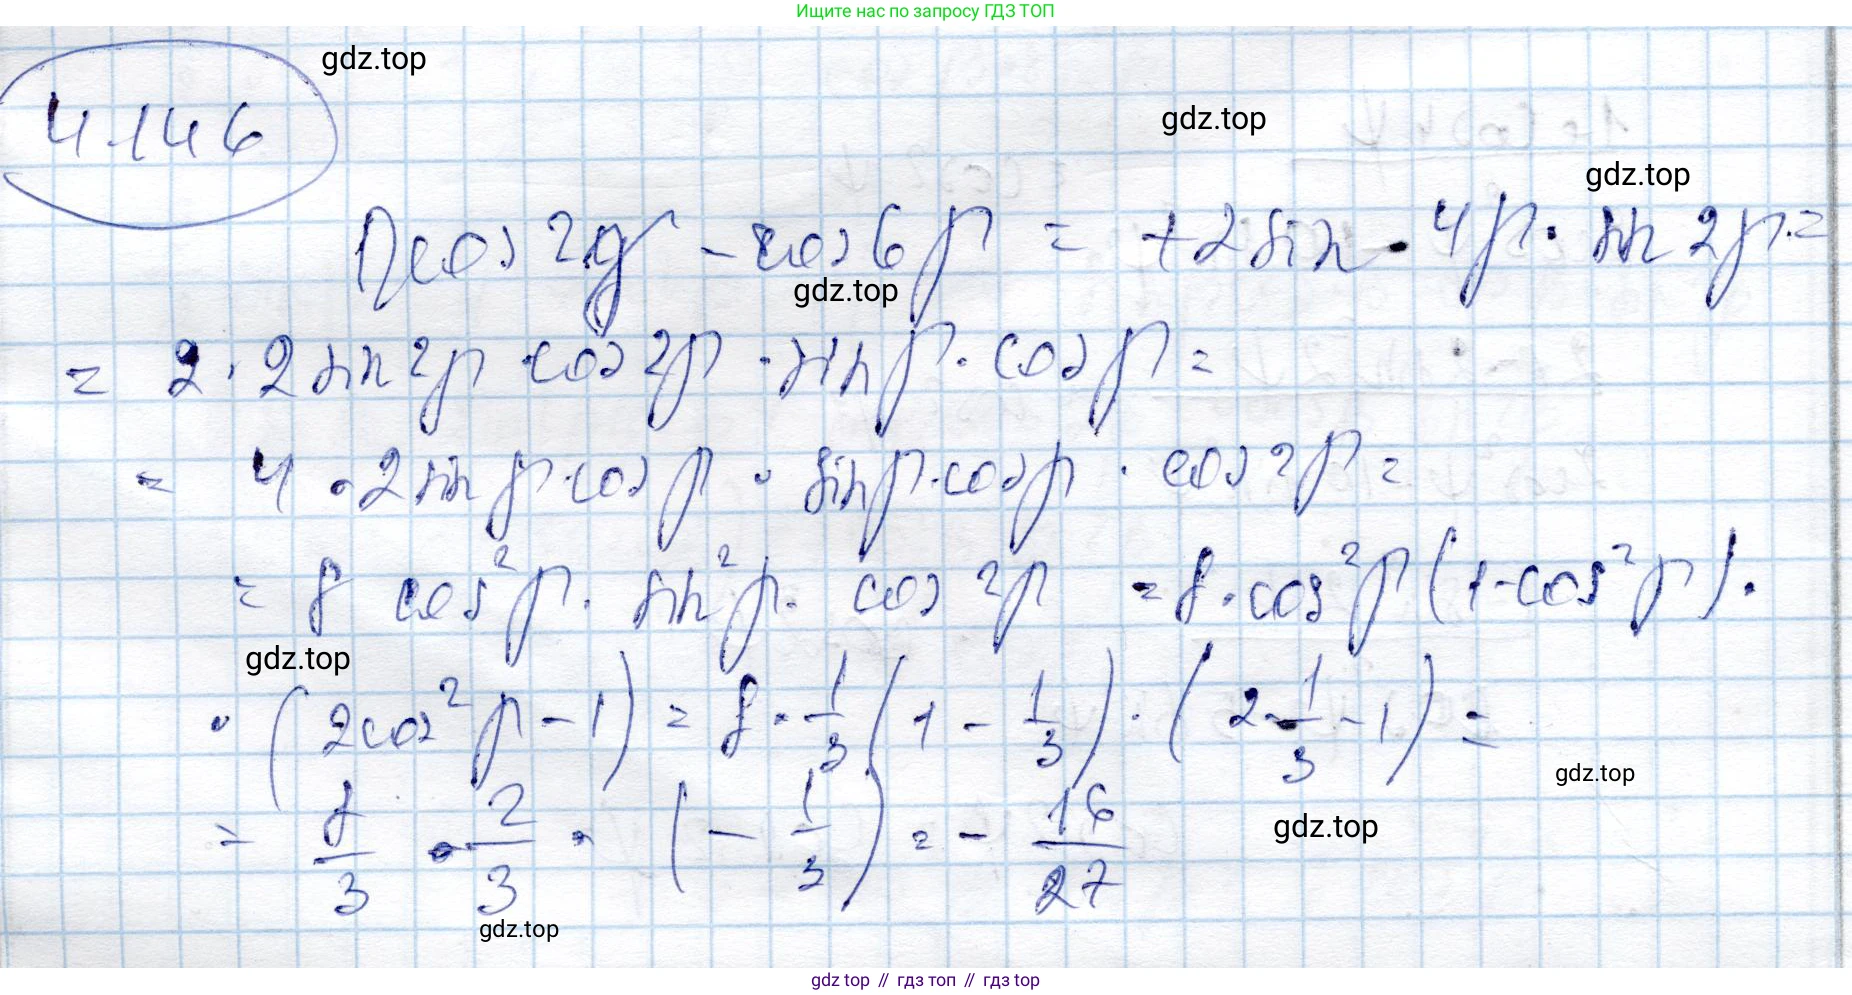 Ищите нас по запросу ГДЗ ТОП
4.146
gdz.top
gdz.top
gdz.top
1) cos 2β - cos 6β = +2 sin · 4β · sin 2β =
gdz.top
= 2 · 2 sin 2β · cos 2β · sin β · cos β =
= 4 · 2 sin β · cos β · sin β · cos β · cos 2β =
= 8 cos² β · sin² β · cos 2β = 8 · cos² β (1 - cos² β) ·
gdz.top
· (2 cos² β - 1) = 8 · 1/3 (1 - 1/3) · (2 · 1/3 - 1) =
gdz.top
= 8/3 · 2/3 · (- 1/3) = - 16/27
gdz.top
gdz.top
gdz top // гдз топ // гдз top